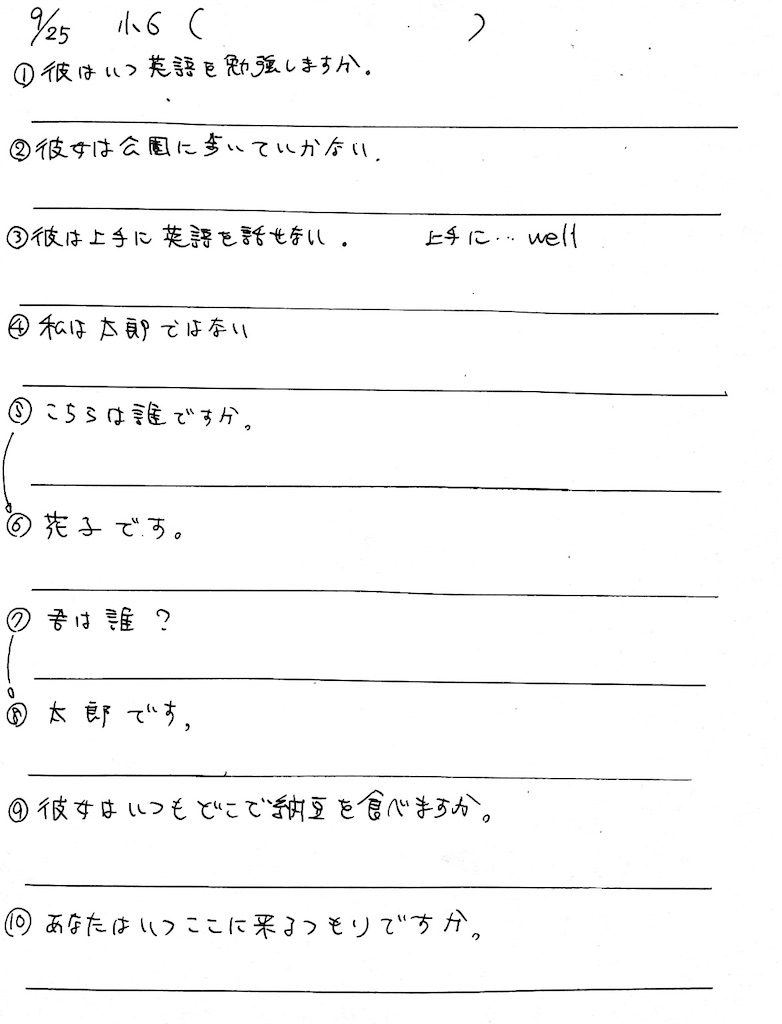 9/25 小6 ( )
①彼はいつ英語を勉強しますか。
②彼女は公園に歩いていかない.
③彼は上手に英語を話せない. 上手に… well
④私は太郎ではない
⑤こちらは誰ですか。
⑥花子です。
⑦君は誰?
⑧太郎です,
⑨彼女はいつもどこで納豆を食べますか。
⑩あなたはいつここに来るつもりですか。